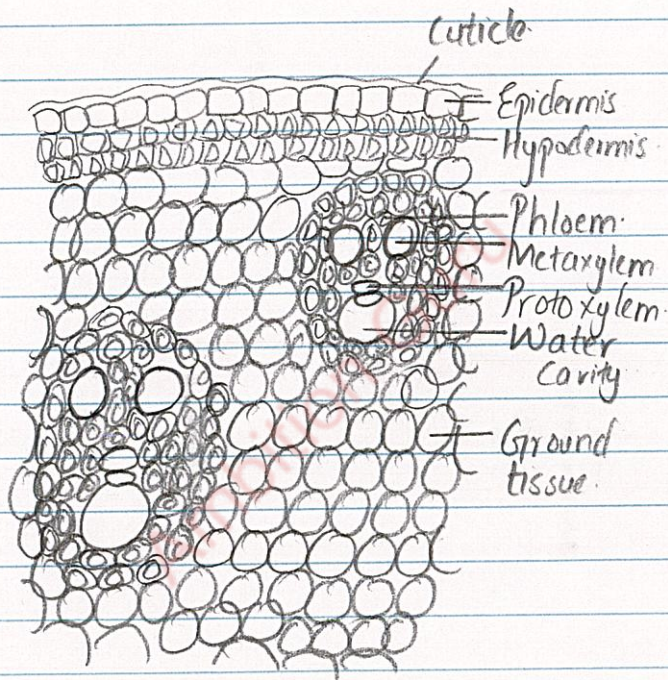 Cuticle.
Epidermis
Hypodermis.
Phloem.
Metaxylem
Protoxylem.
Water
Cavity
Ground
tissue.